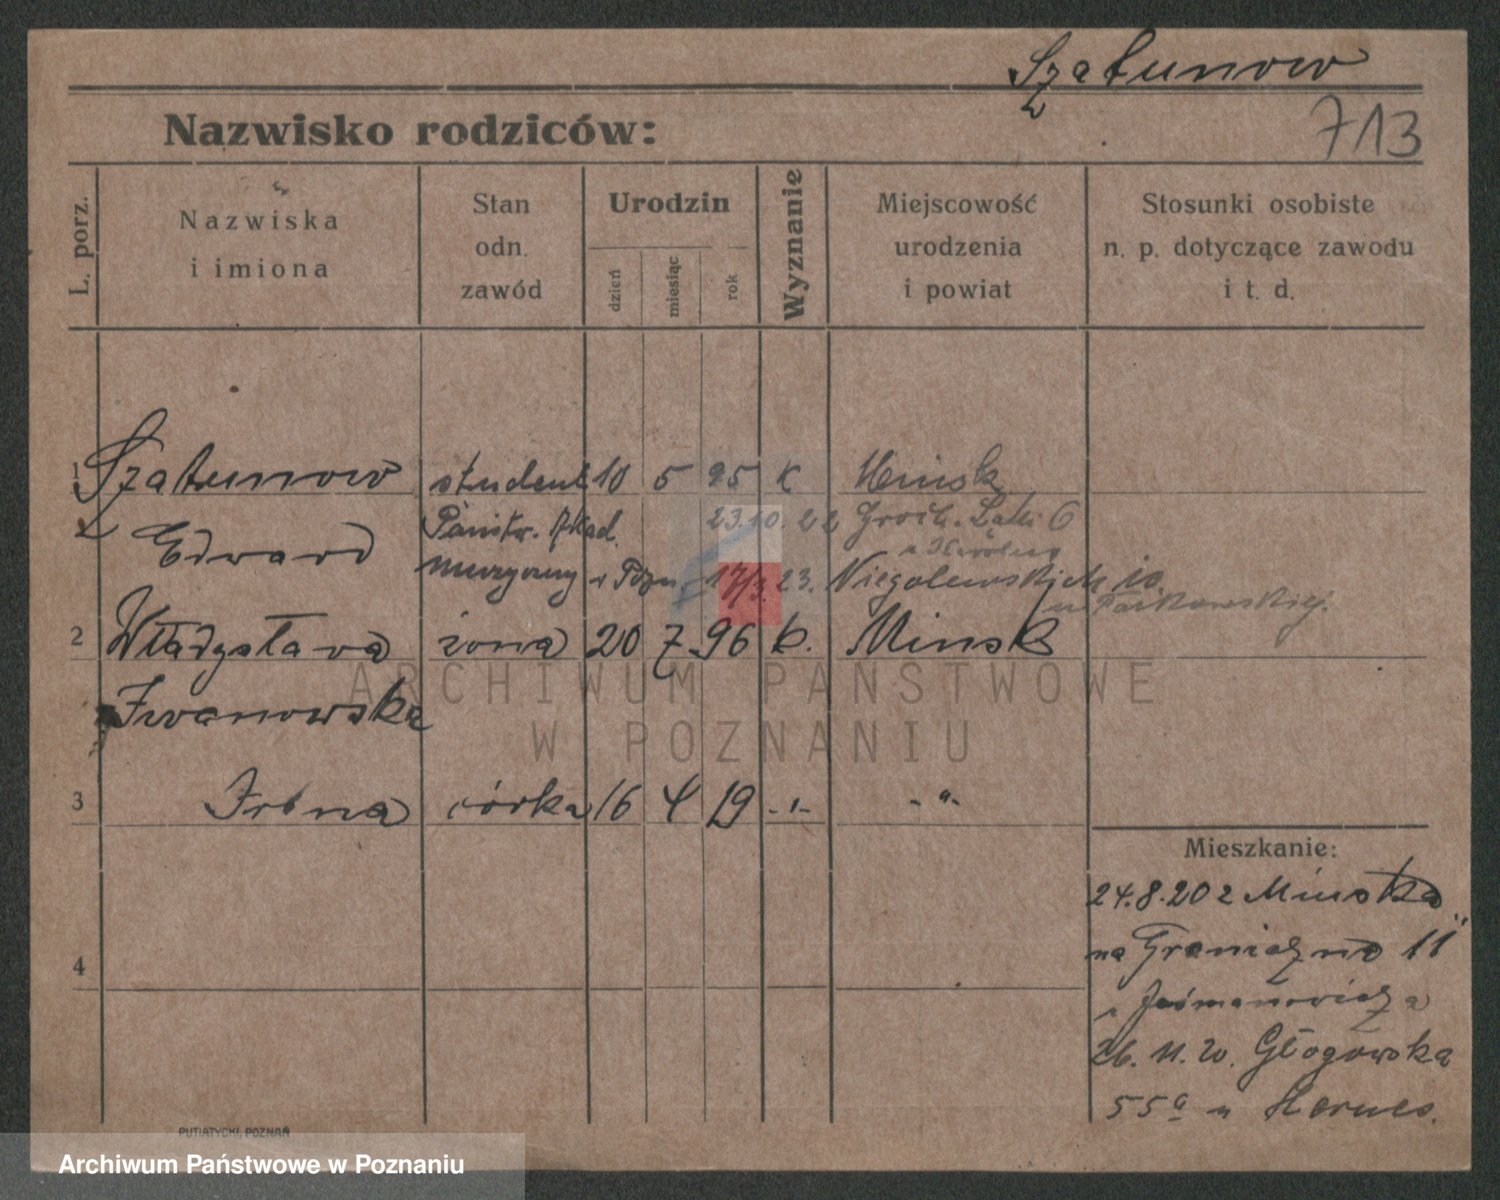 Szatunow
Nazwisko rodziców:
713
L. porz.
Nazwiska
i imiona
Stan
odn.
zawód
Urodzin
dzień
miesiąc
rok
Wyznanie
Miejscowość
urodzenia
i powiat
Stosunki osobiste
n. p. dotyczące zawodu
i t. d.
1 Szatunow student 10 5 95 k Minsk
Edward Państw. Akad. 23.10.22 Groch. Łąki 6
muzyczny 17/3. 23. Niegolewskich 10
2 Władysława żona 20 7 96 k. Minsk
Iwanowska
3 Irena córka 16 4 19 -"- -"-
4
Mieszkanie:
24.8.20 z Minska
na Graniczną 11
26. 11. 20. Głogowska
55a u
PUTIATYCKI, POZNAŃ
ARCHIWUM PAŃSTWOWE
W POZNANIU
Archiwum Państwowe w Poznaniu